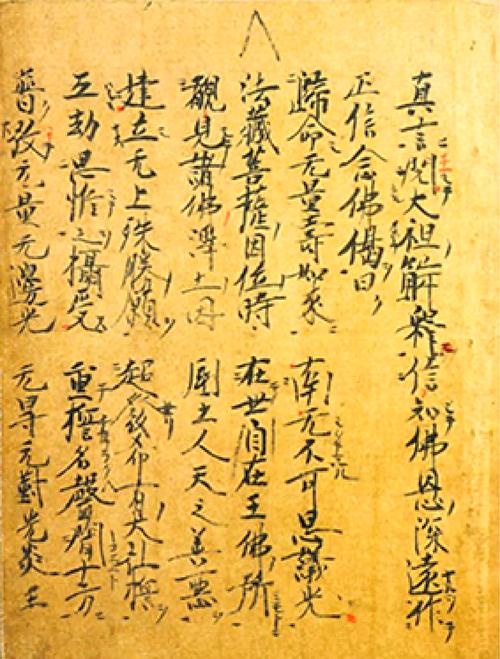 真言閲大祖解釋信知佛恩深遠作
正信念佛偈曰
歸命无量壽如来 南无不可思議光
法蔵菩薩因位時 在世自在王佛所
覩見諸佛淨土因 國土人天之善悪
建立无上殊勝願 超發希有大弘誓
五劫思惟之攝受 重誓名聲聞十方
普放无量无邊光 无㝵无對光炎王